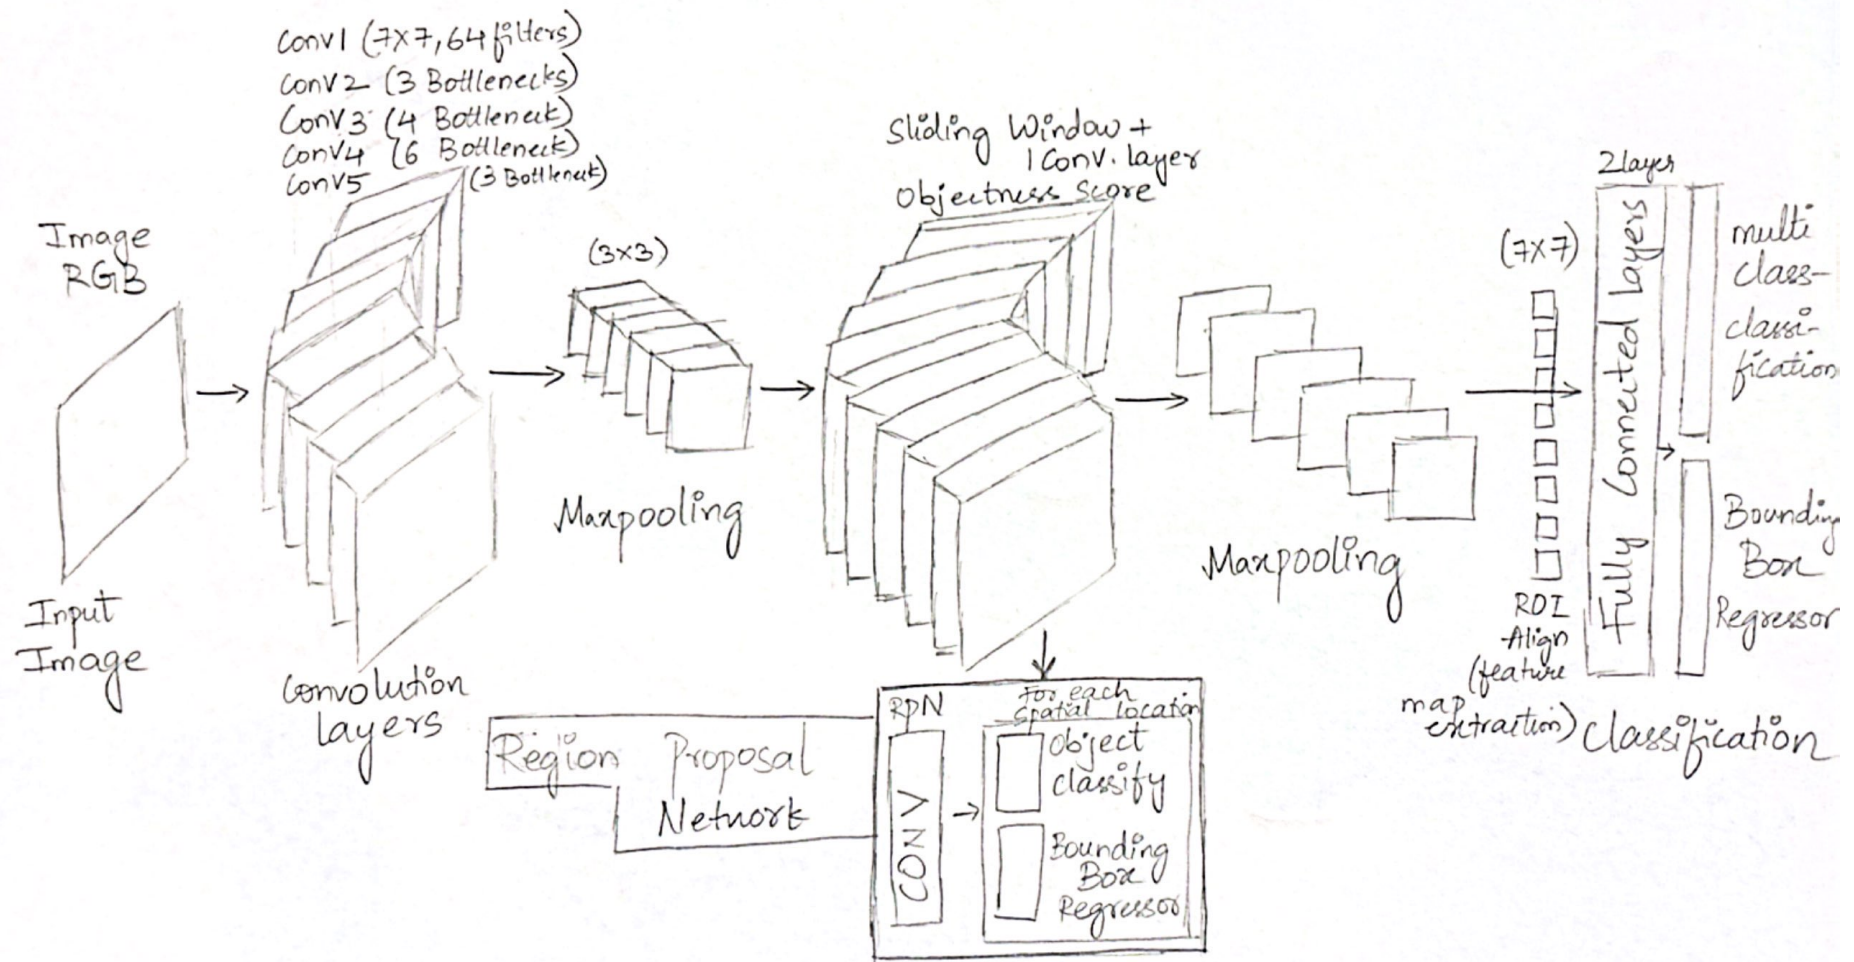 Conv1 (7×7, 64 filters)
Conv2 (3 Bottlenecks)
Conv3 (4 Bottleneck)
Conv4 (6 Bottleneck)
Conv5 (3 Bottleneck)
Image
RGB
Input
Image
Convolution
layers
(3×3)
Maxpooling
Sliding Window +
1 Conv. layer
Objectness Score
Maxpooling
(7×7)
ROI
Align
(feature
map
extraction)
2 layer
Fully Connected layers
multi
class-
classi-
fication
Bounding
Box
Regressor
Classification
Region Proposal
Network
RPN
CONV
For each
spatial location
Object
classify
Bounding
Box
Regressor